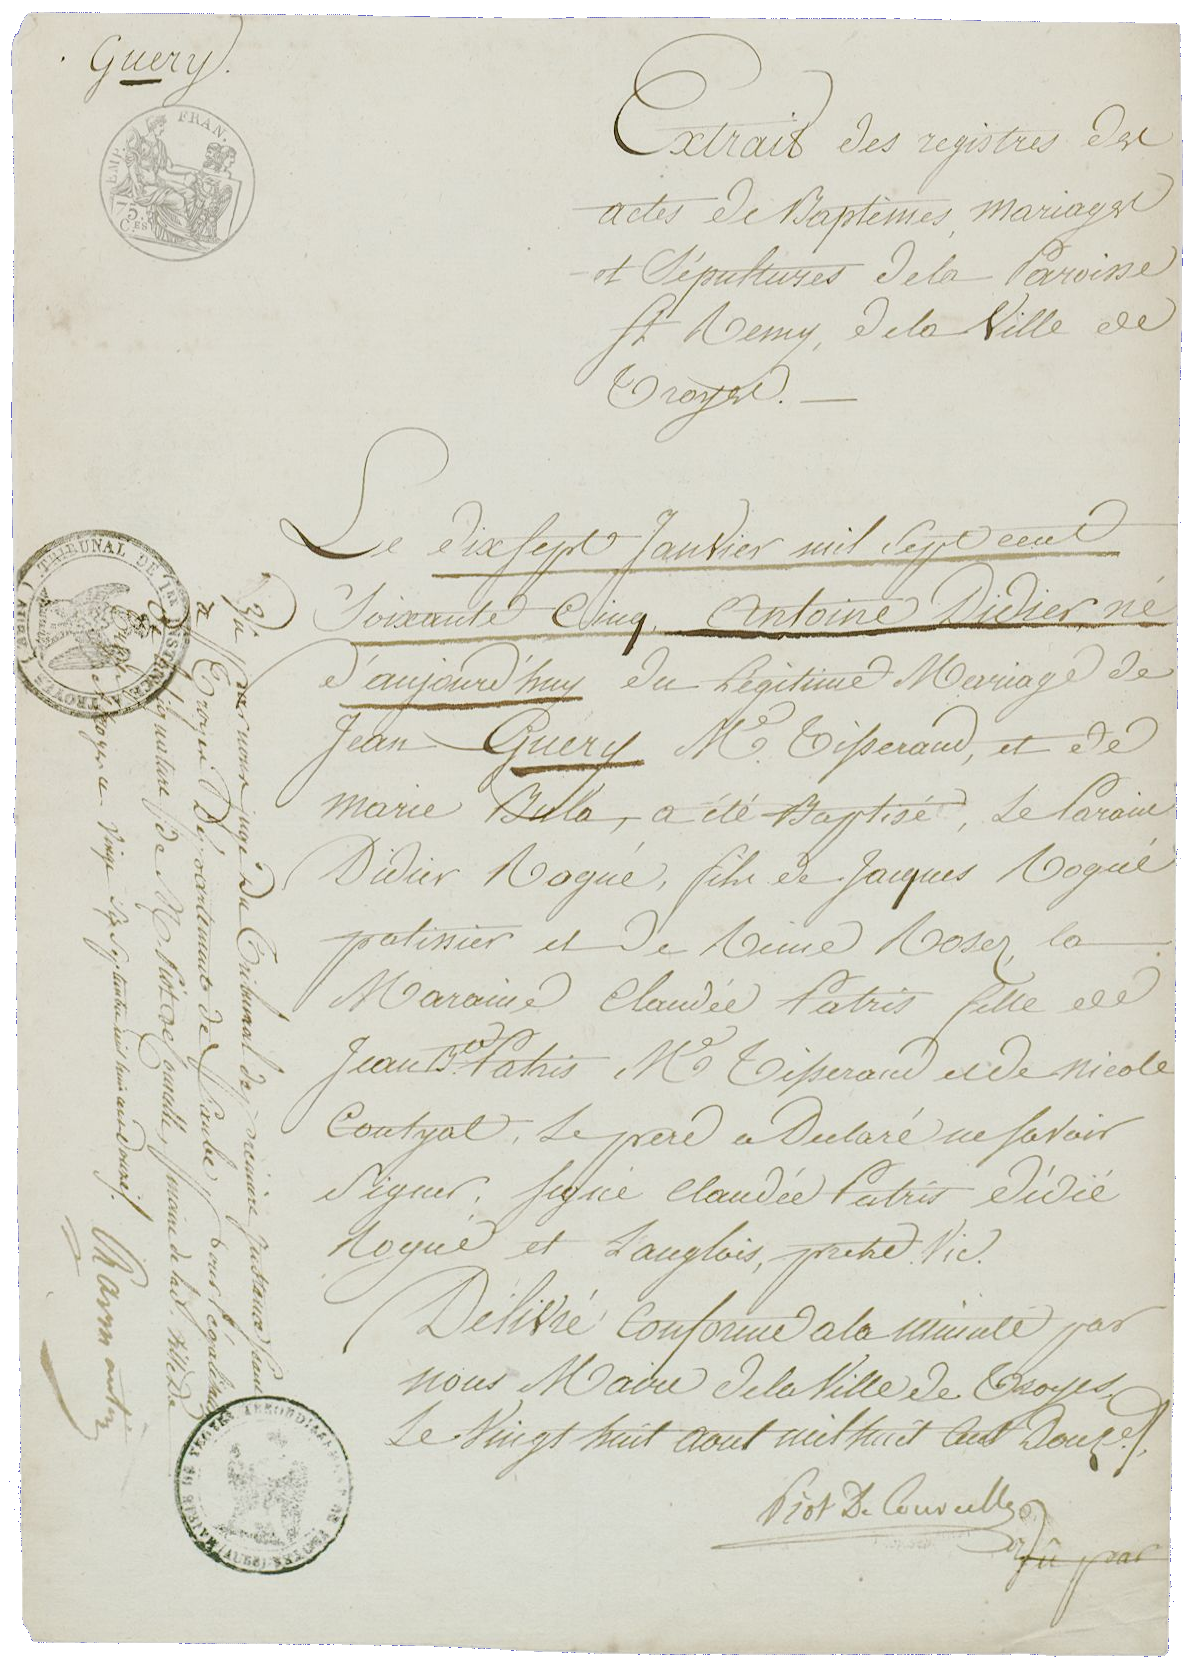 Guery.
EMP. FRAN.
75
C.ES
Extrait des registres des
actes de Baptêmes, mariages
et Sépultures dela Paroisse
St Remy, dela Ville de
Troyes. —
Le dix sept Janvier mil Sept cent
Soixante Cinq, Antoine Didier, né
d'aujourd'huy du Légitime Mariage de
Jean Guery Me. Tisserand, et de
marie Bula, a été Baptisé, Le Parain
Didier Rogué, fils de Jacques Rogué
patissier et de Reine Roser, la
Maraine Claudée Patris fille de
Jean Bte. Patris Me Tisserand et de Nicole
Le pere a Declaré ne savoir
Signer, signé Claudée Patris didié
Rogué et Langlois, pretre Vic.
Délivré Conforme ala minute par
nous Maire dela Ville de Troyes,
Le Vingt huit aout mil huit Cent Douze.
Piot De Courcelles
Vû par
Vû par nous juge du Tribunal de premiere instance séant
à Troyes Département de l'aube, pour légalisation
de la signature de M. Piot de Courcelles, maire de lad. ville de
Troyes. Troyes ce Vingt Six Septembre mil huit cent douze.
TRIBUNAL DE 1RE INSTANCE A TROYES (AUBE)
MAIRIE DE TROYES ARRONDISSEMENT DE TROYES (AUBE)